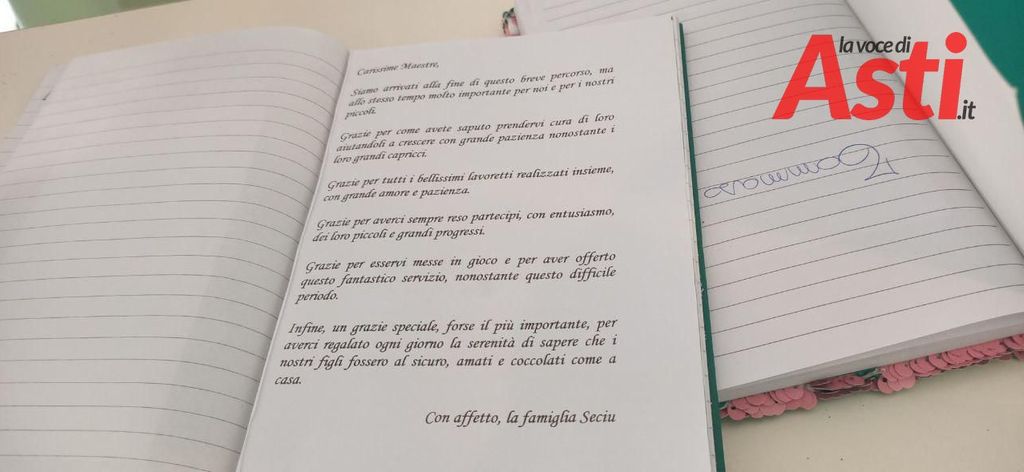 Carissime Maestre,
Siamo arrivati alla fine di questo breve percorso, ma
allo stesso tempo molto importante per noi e per i nostri
piccoli.
Grazie per come avete saputo prendervi cura di loro
aiutandoli a crescere con grande pazienza nonostante i
loro grandi capricci.
Grazie per tutti i bellissimi lavoretti realizzati insieme,
con grande amore e pazienza.
Grazie per averci sempre reso partecipi, con entusiasmo,
dei loro piccoli e grandi progressi.
Grazie per esservi messe in gioco e per aver offerto
questo fantastico servizio, nonostante questo difficile
periodo.
Infine, un grazie speciale, forse il più importante, per
averci regalato ogni giorno la serenità di sapere che i
nostri figli fossero al sicuro, amati e coccolati come a
casa.
Con affetto, la famiglia Seciu
la voce di
Asti.it
Tommaso